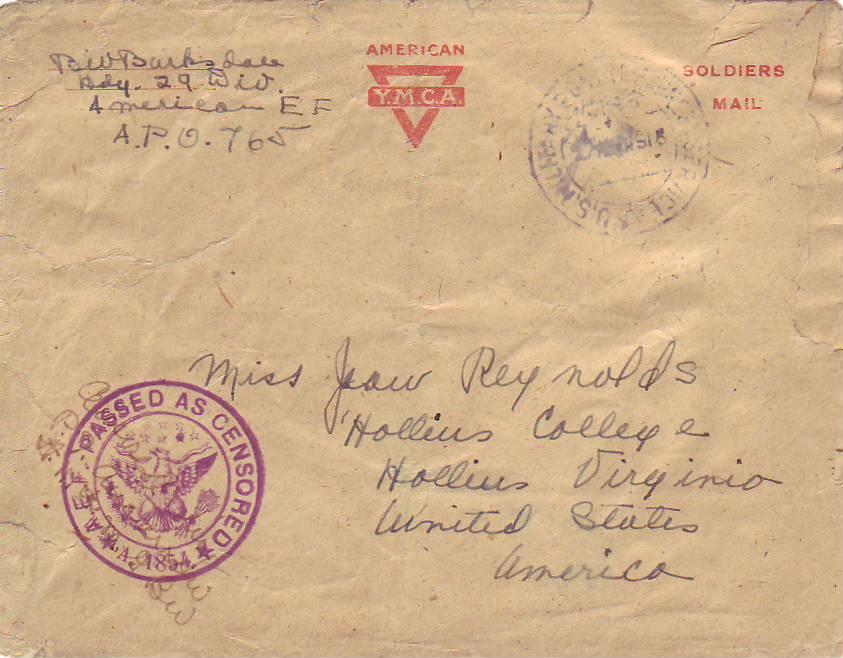 Bill Barksdale
Hdq. 29 Div.
American E F
A.P.O. 765
AMERICAN
Y.M.C.A.
SOLDIERS
MAIL
U.S. MILITARY
Miss Jean Reynolds
Hollins College
Hollins Virginia
United States
America
A.E.F. PASSED AS CENSORED
A. 1854